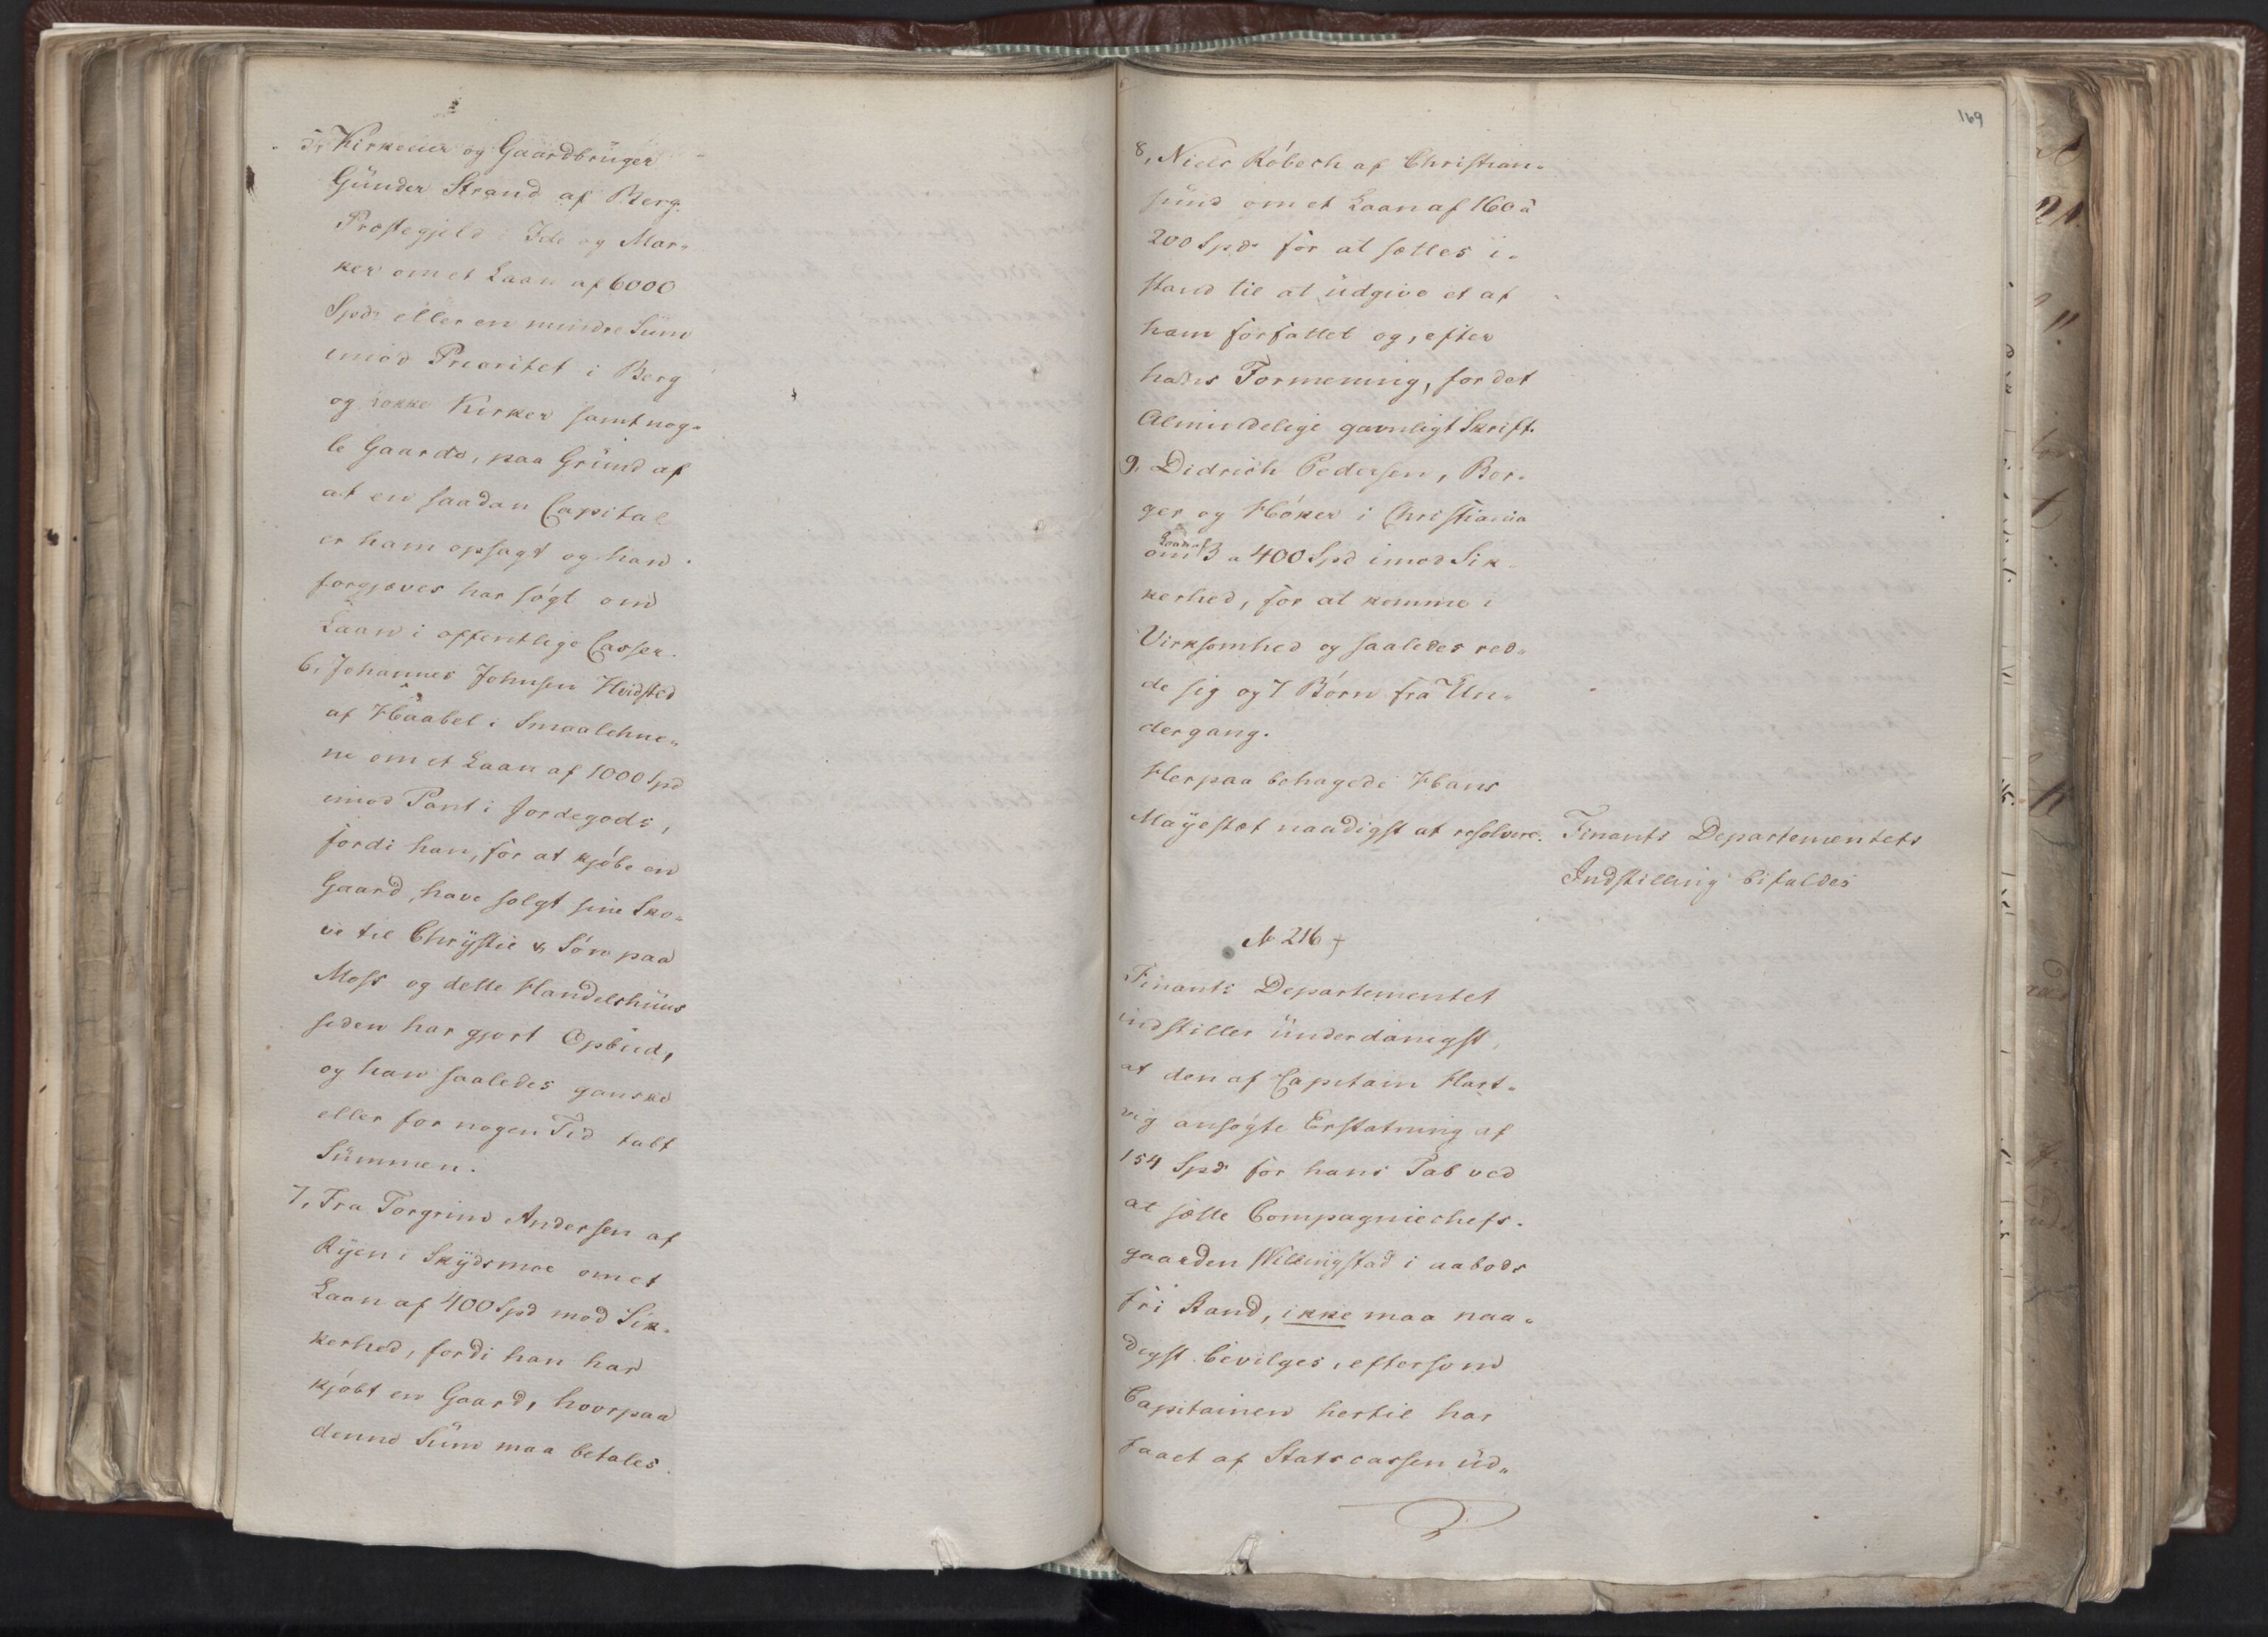 5, Kirkeeier og Gaardbrüger
Günder Strand af Berg
Præstegjeld i Ide og Mar-
ker om et Laan af 6000
Spdr eller en mindre Süm
imod Prioritet i Berg
og Rokke Kirker samt nog-
le Gaarde, paa Gründ af
at en saadan Capital
er ham opsagt og han
forgjæves har søgt om
Laan i offentlige Casser.
6, Johannes Johnsen Hvidsted
af Haabøl i Smaalehne-
ne om et Laan af 1000 Spd
imod Pant i Jordegods,
fordi han, for at kjøbe en
Gaard, have solgt sine Sko-
ve til Chrystie & Søn paa
Moss og dette Handelshüus
siden har gjort Opbüd,
og han saaledes ganske
eller for nogen Tid tabt
Sümmen.
7, Fra Torgrim Andersen af
Ryen i Skydsmoe om et
Laan af 400 Spd mod Sik-
kerhed, fordi han har
kjøbt en Gaard, hvorpaa
denne Süm maa betales.
169
8, Niels Røbech af Christian-
sünd om et Laan af 160 à
200 Spdr for at sættes i-
stand til at üdgive et af
ham forfattet og, efter
hans Formening, for det
Almindelige gavnligt Skrift.
9, Didrich Pedersen, Bor-
ger og Høker i Christiania
om Laan af 3 a 400 Spd imod Sik-
kerhed, for at komme i
Virksomhed og saaledes red-
de sig og 7 Børn fra Un-
dergang.
Herpaa behagede Hans
Mayestæt naadigst at resolvere. Finants Departementets
Indstilling bifaldes
No 216 +
Finants Departementet
indstiller ünderdanigst,
at den af Capitain Hart-
vig ansøgte Erstatning af
154 Spdr for hans Tab ved
at sætte Compagniechefs-
gaarden Willingstad i aabods
fri Stand, ikke maa naa-
digst bevilges, eftersom
Capitainen hertil har
faaet af Statscassen üd-